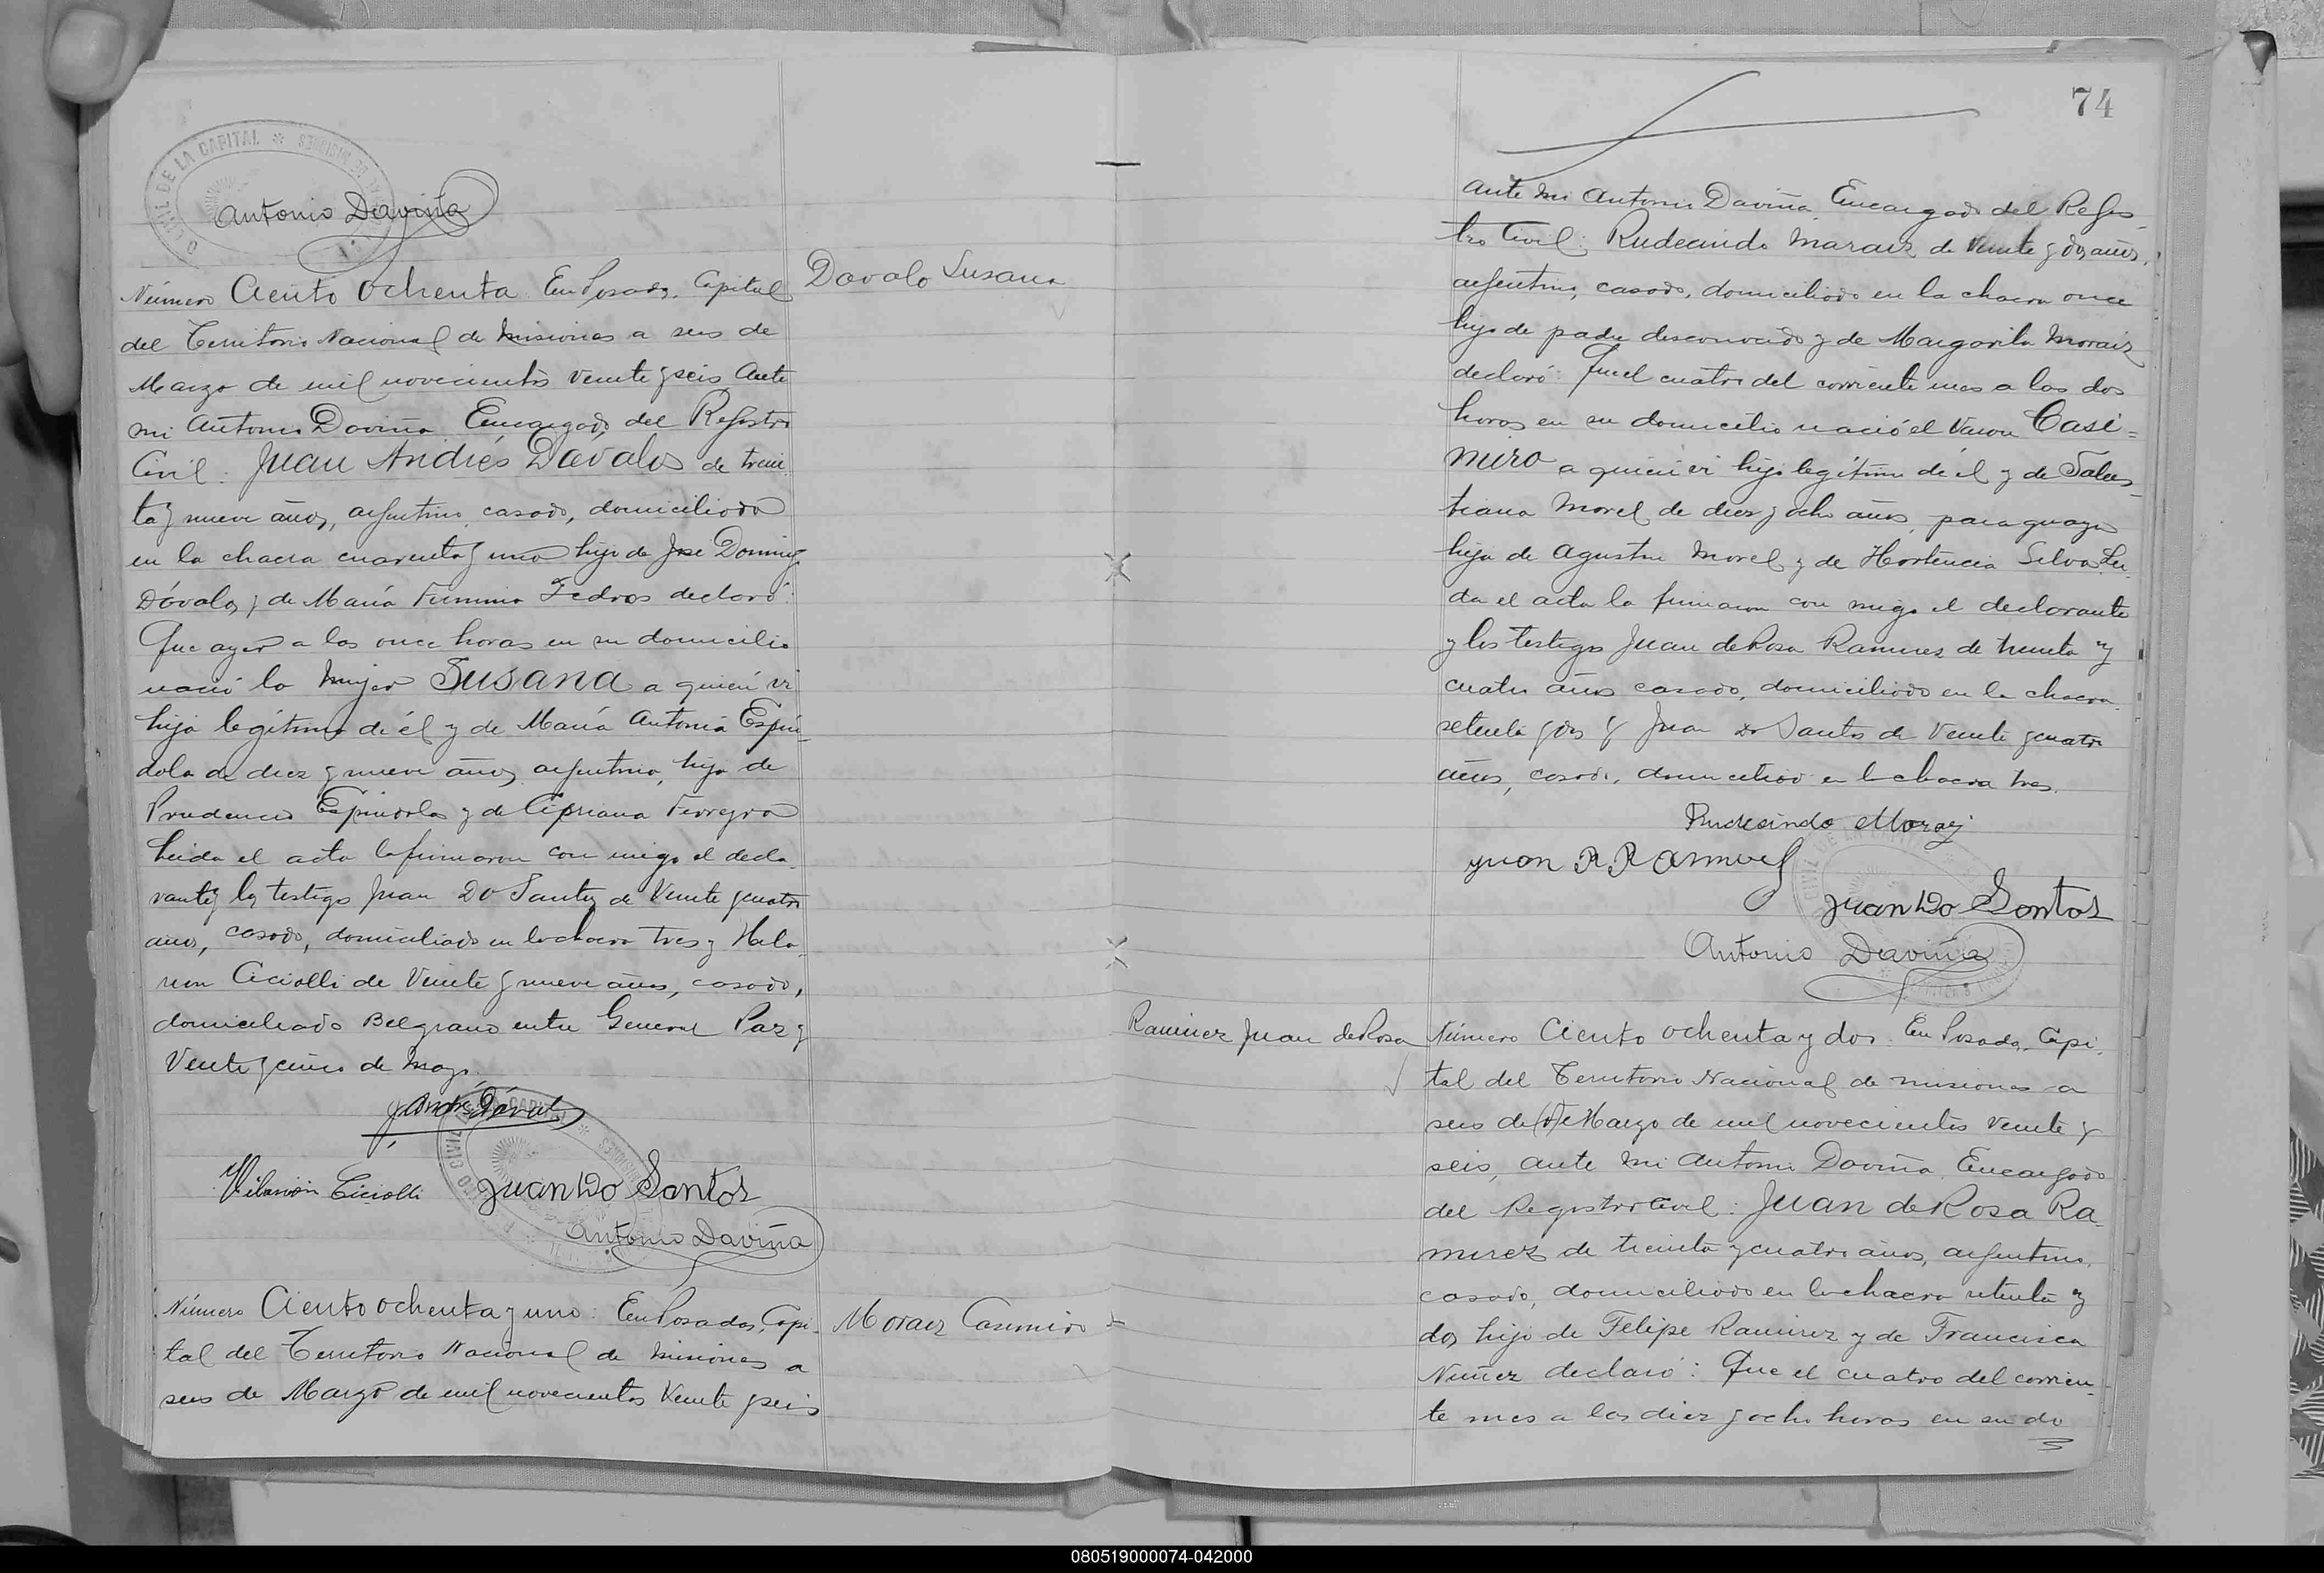 O CIVIL DE LA CAPITAL * MISIONES
Antonio Daviña
Número Ciento Ochenta. En Posadas, Capital
Davalo Susana
del Territorio Nacional de Misiones a seis de
Marzo de mil novecientos veinte y seis Ante
mi Antonio Daviña Encargado del Registro
Civil: Juan Andrés Dávalos de trein-
ta y nueve años, argentino, casado, domiciliado
en la chacra cuarenta y uno hijo de José Domingo
Dávalos y de María Fermina Fedros declaró:
Que ayer a las once horas en su domicilio
nació la mujer Susana a quien vi
hija legítima de él y de María Antonia Espín-
dola de diez y nueve años, argentina, hija de
Prudencio Espíndola y de Cipriana Ferreyra
Leida el acta la firmaron con migo el decla-
rante y los testigos Juan Do Santos de Veinte y cuatro
años, casado, domiciliado en la chacra tres y Hila-
rion Ciciolli de Veinte y nueve años, casado,
domiciliado Belgrano entre General Paz y
Veinte y cinco de Mayo.
Hilarión Ciciolli Juan Do Santos
Antonio Daviña
Número Ciento ochenta y uno: En Posadas, Capi-
Moraez Casimiro
tal del Territorio Nacional de Misiones a
seis de Marzo de mil novecientos Veinte y seis
74
ante mi Antonio Daviña Encargado del Regis-
tro Civil: Rudecindo Maraiz de Veinte y dos años,
argentino, casado, domiciliado en la chacra once
hijo de padre desconocido y de Margarita Moraiz
declaró: Que el cuatro del corriente mes a las dos
horas en su domicilio nació el Varon Casi=
miro a quien vi hijo legítimo de él y de Salus-
tiana Morel de diez y ocho años, paraguaya
hija de Agustin Morel y de Hortencia Silva. Lei-
da el acta la firmaron con migo el declarante
y los testigos Juan de Rosa Ramirez de treinta y
cuatro años casado, domiciliado en la chacra
setenta y dos y Juan Do Santos de Veinte y cuatro
años, casado, domiciliado en la chacra tres.
Rudesindo Moraiz
Juan R Ramirez
Juan Do Santos
Antonio Daviña
Ramirez Juan de Rosa
Número Ciento ochenta y dos. En Posadas, Capi-
tal del Territorio Nacional de misiones a
seis de Marzo de mil novecientos veinte y
seis, ante mi Antonio Daviña Encargado
del Registro Civil: Juan de Rosa Ra-
mirez de treinta y cuatro años, argentino,
casado, domiciliado en la chacra setenta y
dos hijo de Felipe Ramirez y de Francisca
Nuñez declaró: Que el cuatro del corrien-
te mes a las diez y ocho horas en su do
080519000074-042000